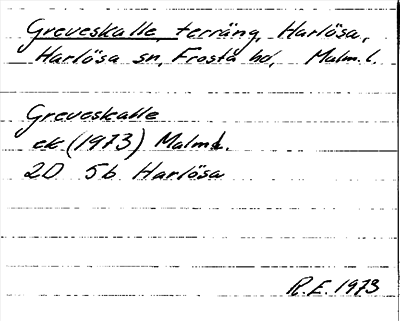 Greveskalle, terräng, Harlösa,
Harlösa sn, Frosta hd, Malm. l.
Greveskalle
ek (1973) Malmö.
2D 5b Harlösa
R.E. 1973